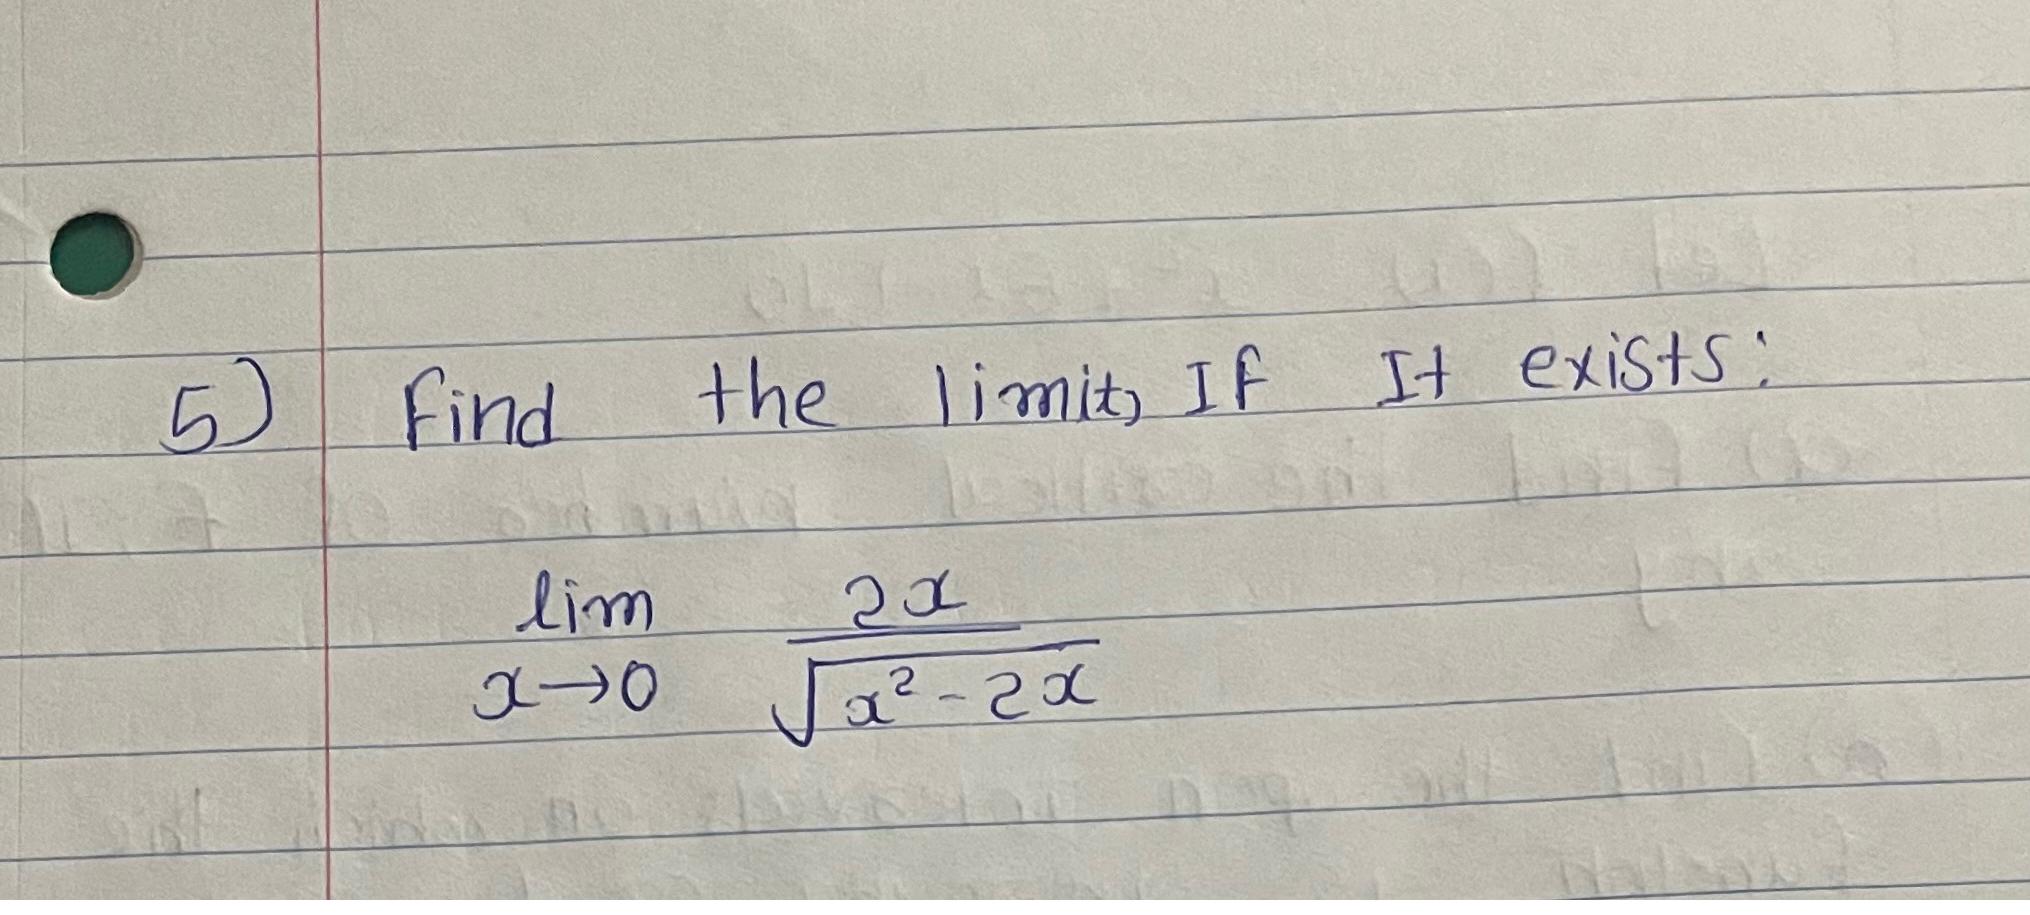 5) Find the limit, If It exists:
lim 2x
x→0 √x²-2x